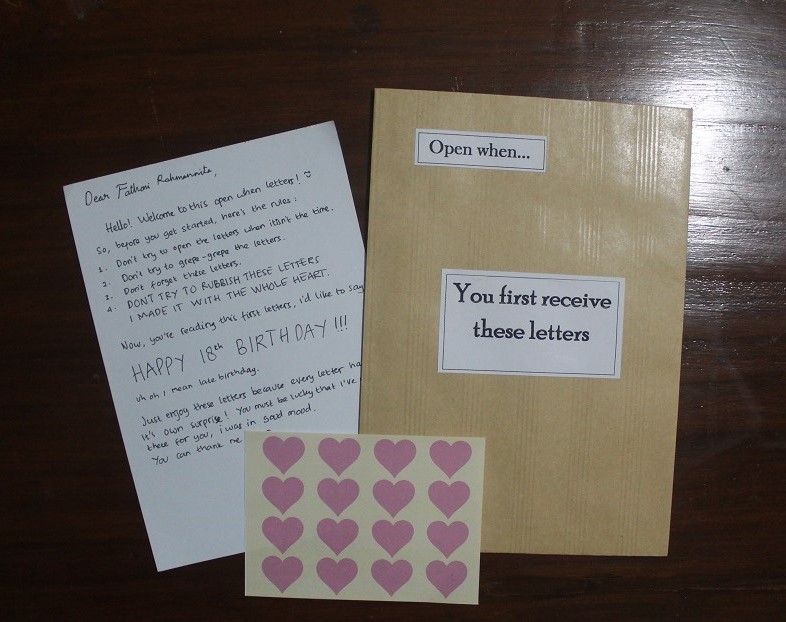 Dear Fathoni Rahmannita,
Hello! Welcome to this open when letters!
So, before you get started, here's the rules:
1. Don't try to open the letters when it isn't the time.
2. Don't try to grepe-grepe the letters.
3. Don't forget these letters.
4. DON'T TRY TO RUBBISH THESE LETTERS
I MADE IT WITH THE WHOLE HEART.
Now, you're reading this first letters, i'd like to say
HAPPY 18th BIRTHDAY!!!
uh oh i mean late birthday.
Just enjoy these letters because every letter
it's own surprise! You must be lucky that I've
these for you, i was in good mood.
You can thank me
Open when...
You first receive
these letters